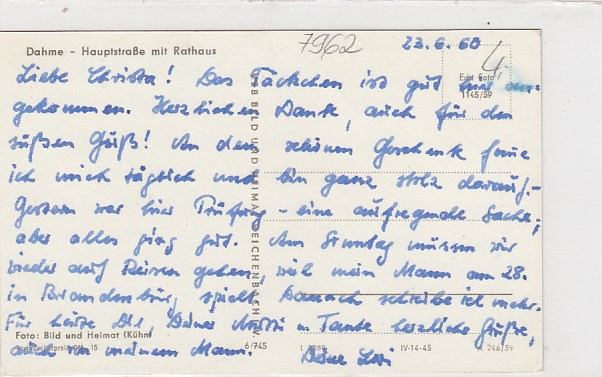 Dahme - Hauptstraße mit Rathaus
7962
23.6.60
4,-
Echt Foto
1145/59
Liebe Christa! Das Päckchen ist gut hier an-
gekommen. Herzlichen Dank, auch für den
süßen Gruß! An dem schönen Geschenk freue
ich mich täglich und bin ganz stolz darauf.-
Gestern war hier Prüfung - eine aufregende Sache,
aber alles ging gut. Am Sonntag müssen wir
wieder auf Reisen gehen, weil mein Mann am 28.
in Brandenburg spielt. Danach schreibe ich mehr.
Für heute Dir, Deiner Mutti u Tante herzliche Grüße,
auch von meinem Mann. Deine
VEB BILD UND HEIMAT REICHENBACH I. V.
Foto: Bild und Heimat (Kühn)
15
6/745
IV-14-45
A 746/59